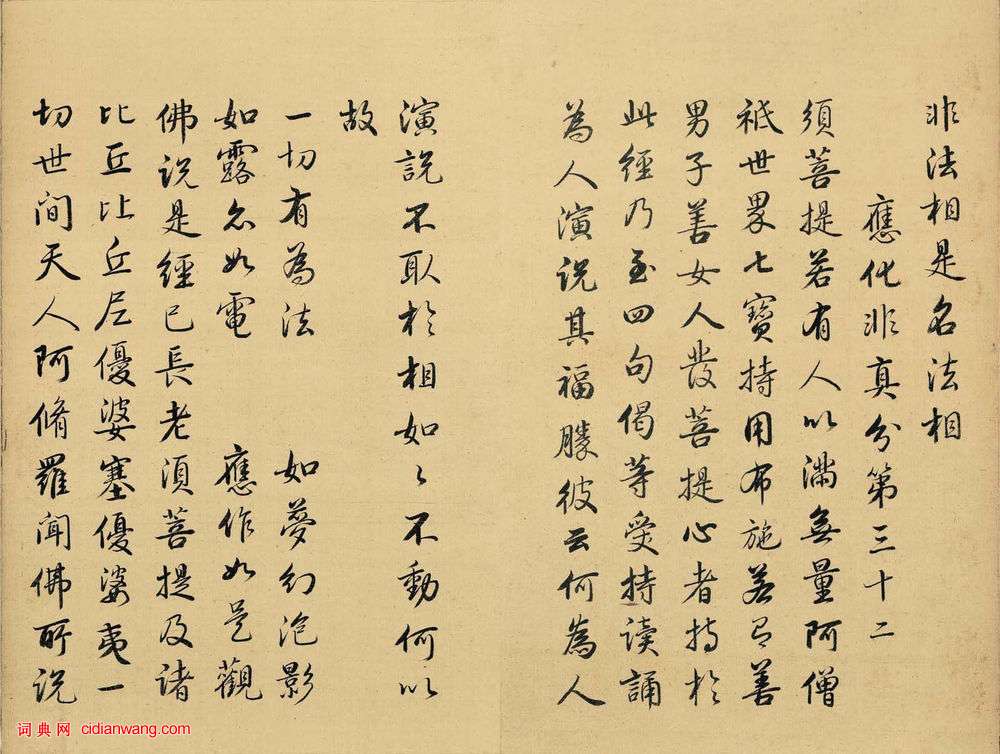 非法相是名法相
應化非真分第三十二
須菩提若有人以滿無量阿僧
祇世界七寶持用布施若有善
男子善女人發菩提心者持於
此經乃至四句偈等受持读誦
為人演说其福勝彼云何為人
演説不取於相如々不動何以
故
一切有為法 如夢幻泡影
如露亦如電 應作如是觀
佛说是經已長老須菩提及诸
比丘比丘尼優婆塞優婆夷一
切世间天人阿脩羅闻佛所说
词典网 cidianwang.com